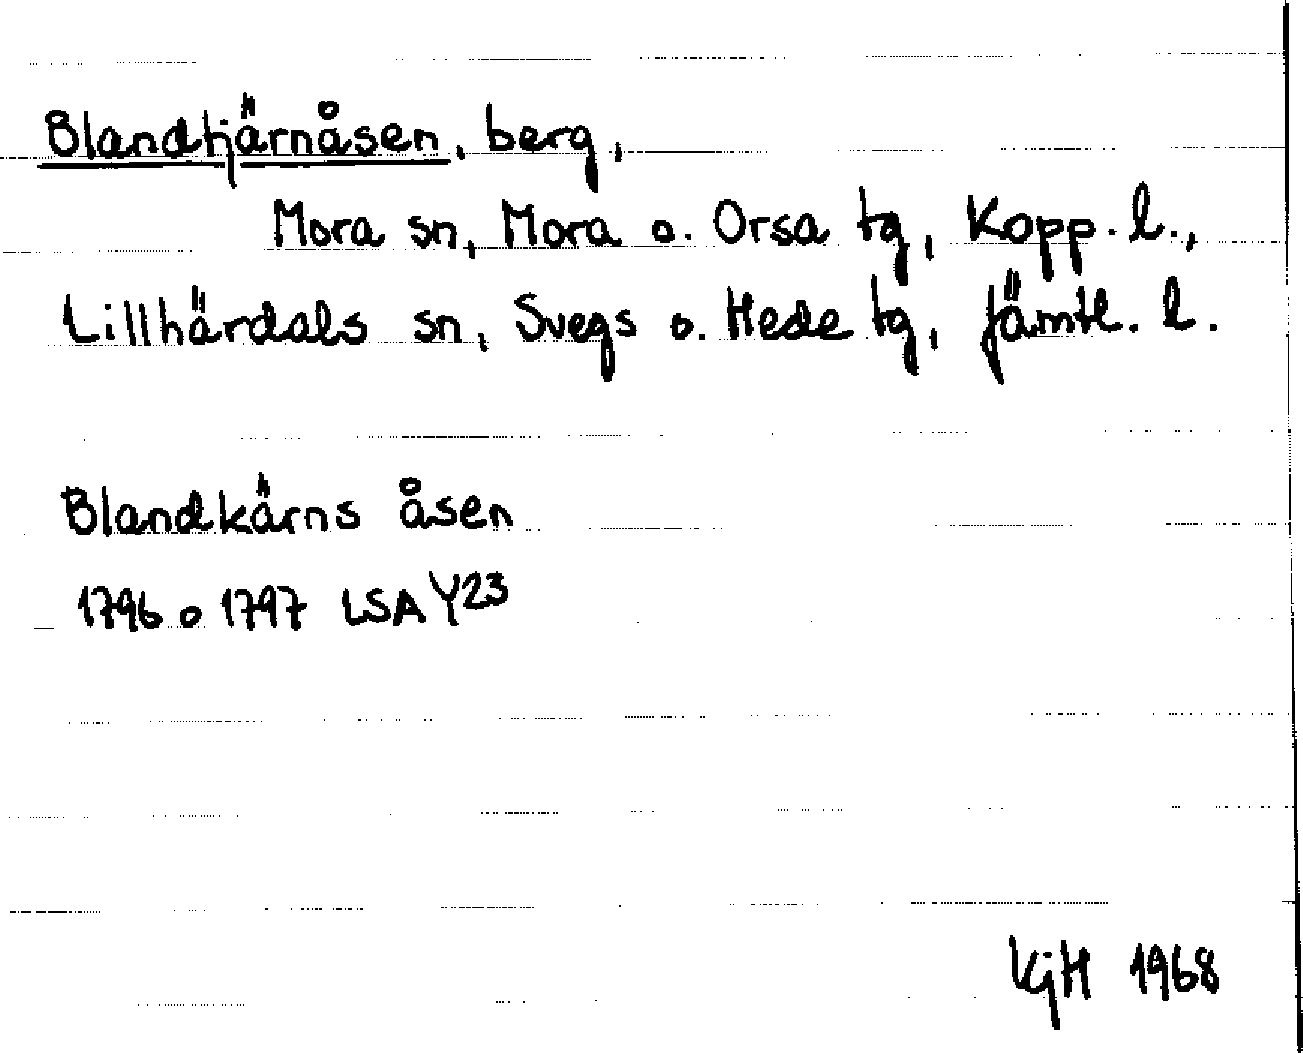 Blandtjärnåsen, berg,
Mora sn, Mora o. Orsa tg, Kopp. l.,
Lillhärdals sn, Svegs o. Hede tg, Jämtl. l.
Blandkärns åsen
1796 o 1797 LSA Y23
KjH 1968